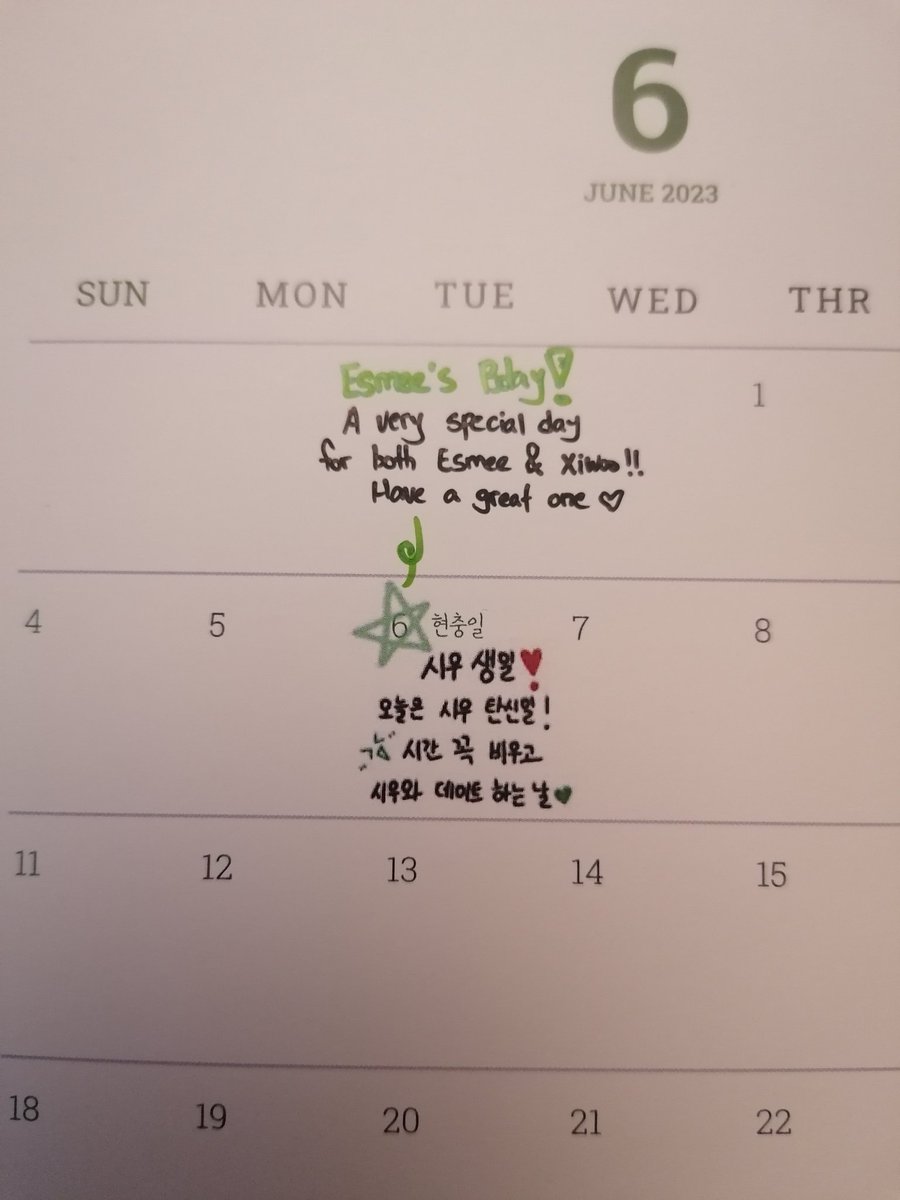 6
JUNE 2023
SUN MON TUE WED THR
Esmee's Bday!
1
A very special day
for both Esmee & Xiwoo!!
Have a great one ♡
4 5 6 현충일 7 8
시우 생일❣
오늘은 시우 탄신일!
시간 꼭 비우고
시우와 데이트 하는 날♥
11 12 13 14 15
18 19 20 21 22